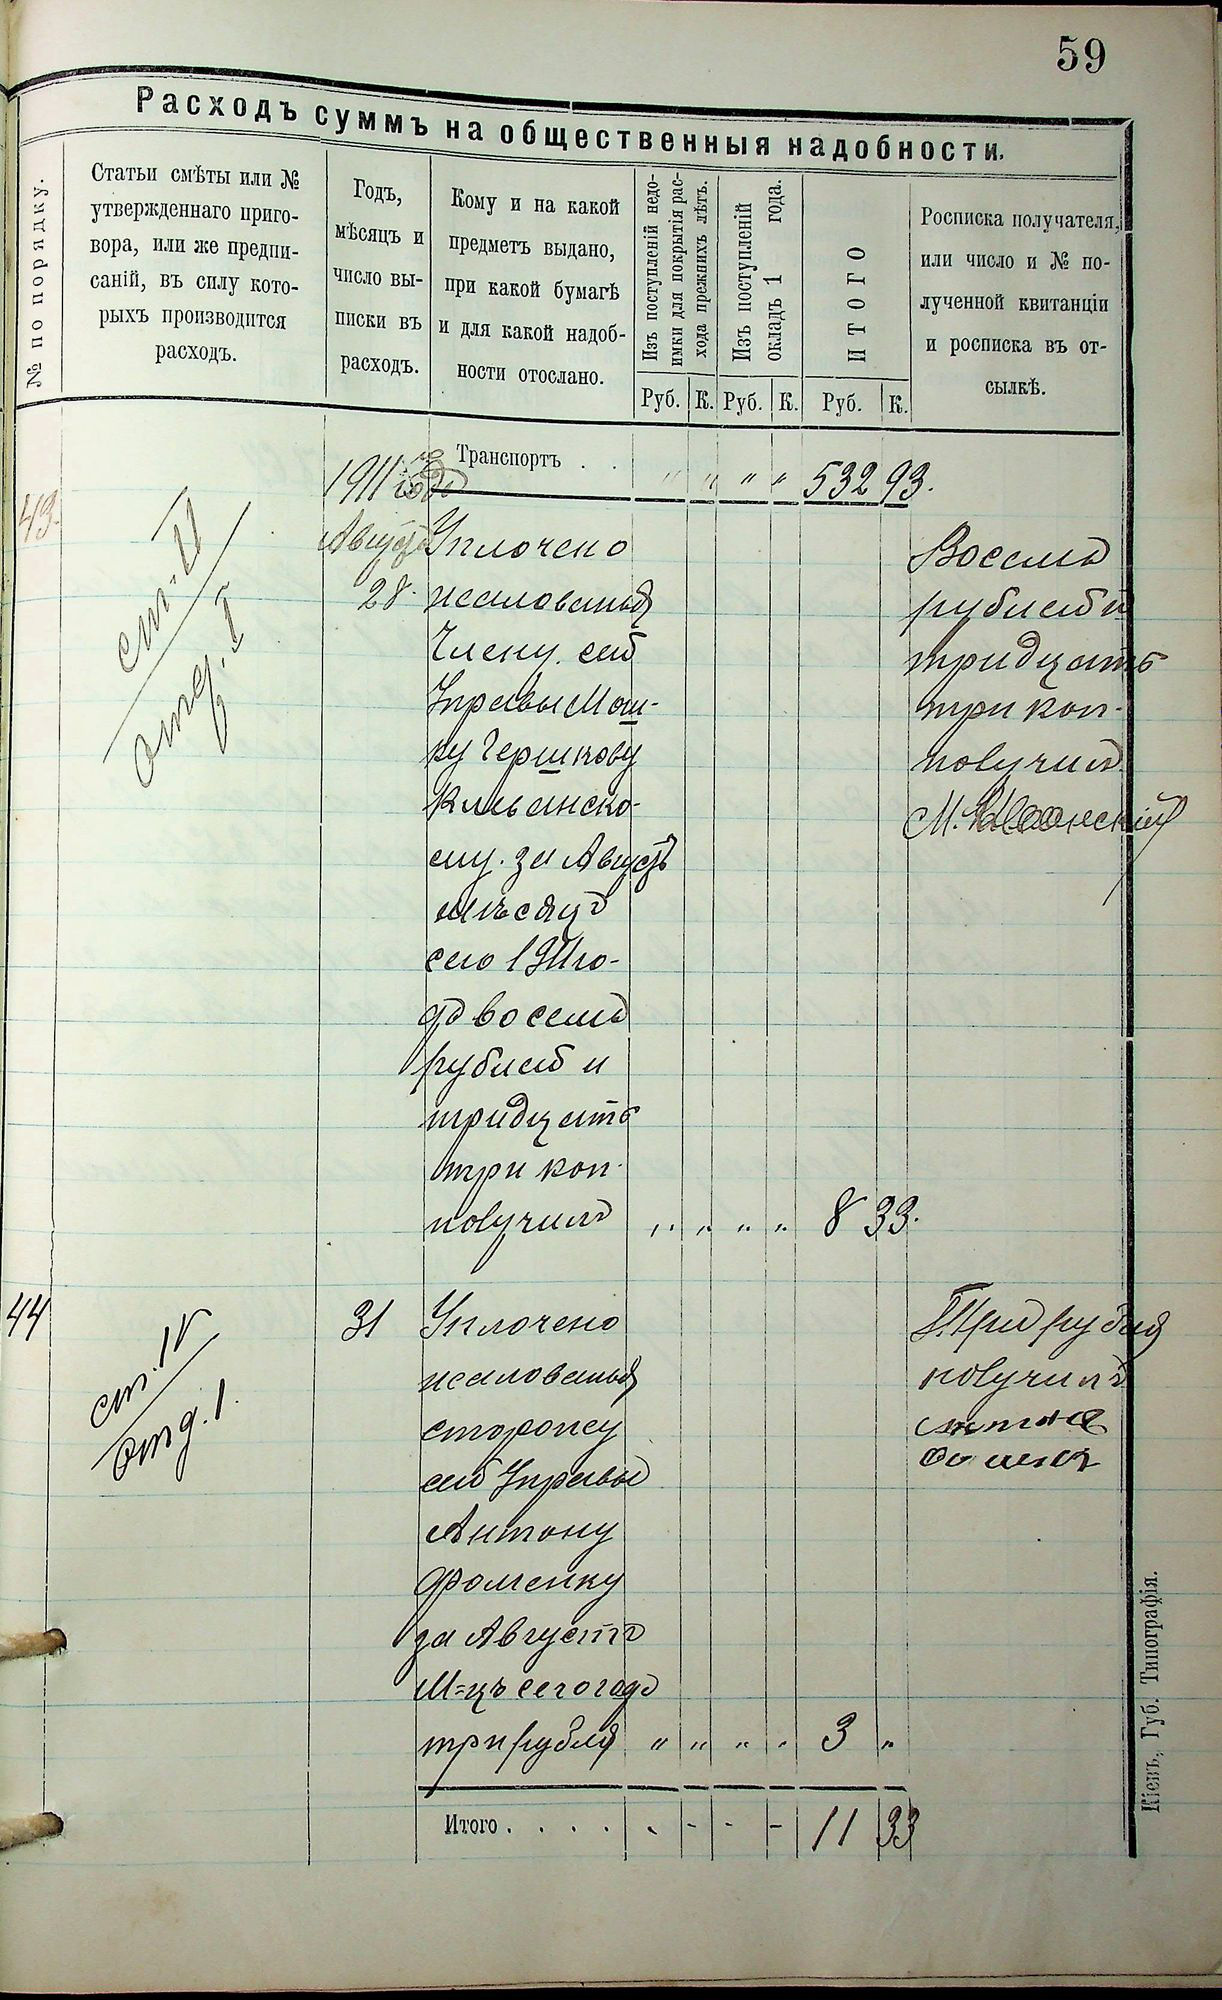 59
Расходъ суммъ на общественныя надобности.
№ по порядку.
Статьи смѣты или №
утвержденнаго приго-
вора, или же предпи-
саній, въ силу кото-
рыхъ производится
расходъ.
Годъ,
мѣсяцъ и
число вы-
писки въ
расходъ.
Кому и на какой
предметъ выдано,
при какой бумагѣ
и для какой надоб-
ности отослано.
Изъ поступленій недо-
имки для покрытія рас-
хода прежнихъ лѣтъ.
Изъ поступленій
окладъ 1 года.
ИТОГО
Росписка получателя,
или число и № по-
лученной квитанціи
и росписка въ от-
сылкѣ.
Руб. К. Руб. К. Руб. К.
1911 Транспортъ . . " " " " 532 93.
43.
ст. II
отд. I
Августа
28.
Уплочено
жалованья
Члену сей
Управы Мош-
ку Гершкову
Клебанско-
му за Августъ
мѣсяцъ
сего 1911 го-
да восемь
рублей и
тридцать
три коп.
получилъ " " " " 8 33.
Восемь
рублей и
тридцать
три коп.
получилъ
М.
44
ст. IV
отд. 1.
31
Уплочено
жалованья
сторожу
сей Управы
Антону
Фоменку
за Августъ
М=цъ сего года
три рубля " " " " 3 "
Три рубля
получилъ
Итого . . . . . - - - 11 33
Кіевъ, Губ. Типографія.